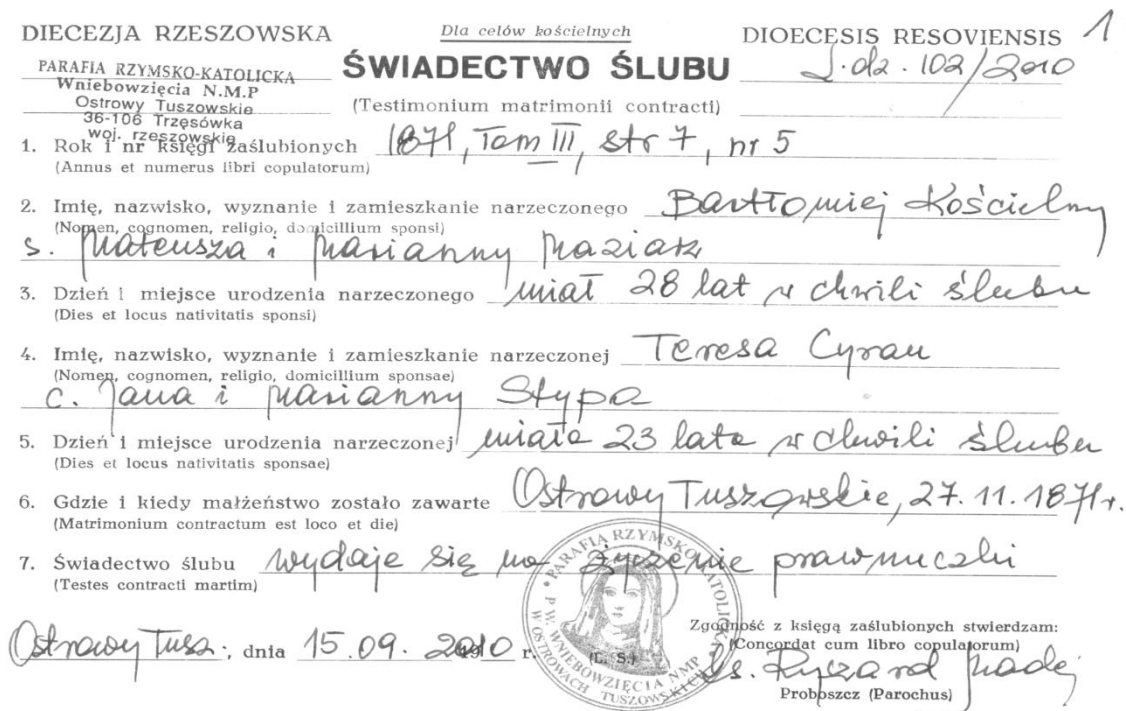 DIECEZJA RZESZOWSKA
Dla celów kościelnych
DIOECESIS RESOVIENSIS
1
PARAFIA RZYMSKO-KATOLICKA
Wniebowzięcia N.M.P
Ostrowy Tuszowskie
36-106 Trzęsówka
woj. rzeszowskie
ŚWIADECTWO ŚLUBU
L.dz. 102/2010
(Testimonium matrimonii contracti)
1. Rok i nr księgi zaślubionych 1871, Tom III, str 7, nr 5
(Annus et numerus libri copulatorum)
2. Imię, nazwisko, wyznanie i zamieszkanie narzeczonego Bartłomiej Kościelny
(Nomen, cognomen, religio, domicillium sponsi)
s. Mateusza i Marianny Maziarz
3. Dzień i miejsce urodzenia narzeczonego miał 28 lat w chwili ślubu
(Dies et locus nativitatis sponsi)
4. Imię, nazwisko, wyznanie i zamieszkanie narzeczonej Teresa Cyran
(Nomen, cognomen, religio, domicillium sponsae)
c. Jana i Marianny Stypa
5. Dzień i miejsce urodzenia narzeczonej miała 23 lata w chwili ślubu
(Dies et locus nativitatis sponsae)
6. Gdzie i kiedy małżeństwo zostało zawarte Ostrowy Tuszowskie, 27.11.1871r.
(Matrimonium contractum est loco et die)
7. Świadectwo ślubu wydaje się na życzenie prawnuczki
(Testes contracti martim)
PARAFIA RZYMSKO KATOLICKA
P.W. WNIEBOWZIĘCIA NMP
W OSTROWACH TUSZOWSKICH
Ostrowy Tusz., dnia 15.09.2010 r.
(L. S.)
Zgodność z księgą zaślubionych stwierdzam:
(Concordat cum libro copulatorum)
Ks. Ryszard Madej
Proboszcz (Parochus)